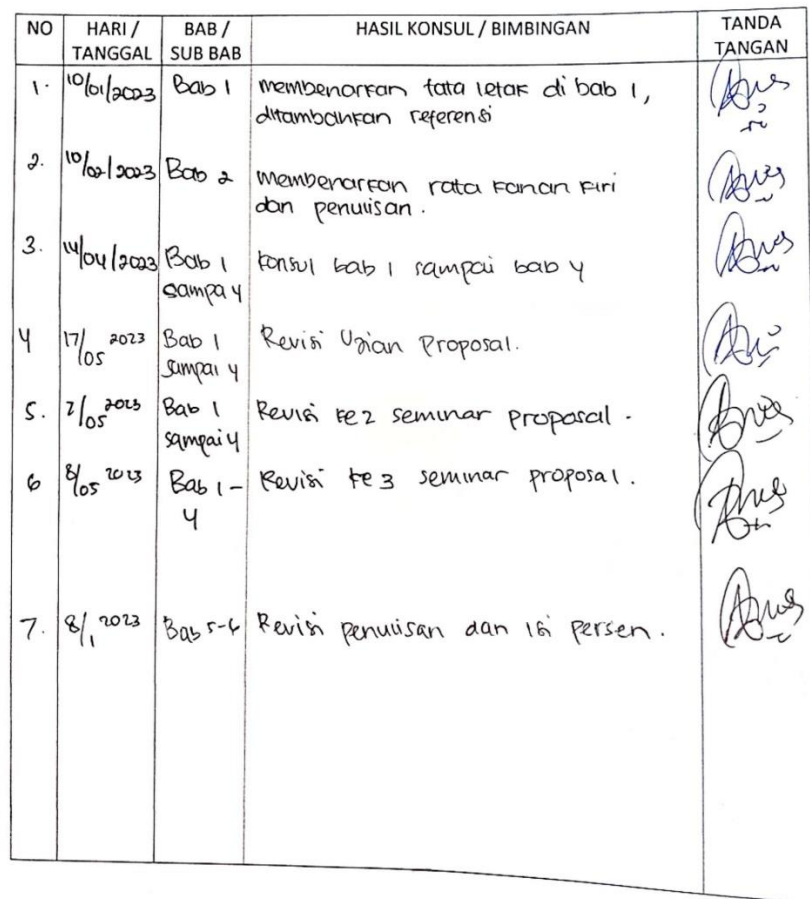 NO HARI / TANGGAL BAB / SUB BAB HASIL KONSUL / BIMBINGAN TANDA TANGAN
1. 10/01/2023 Bab 1 membenarkan tata letak di bab 1,
ditambahkan referensi
2. 10/02/2023 Bab 2 membenarkan rata kanan kiri
dan penulisan.
3. 14/04/2023 Bab 1 konsul bab 1 sampai bab 4
sampa 4
4 17/05 2023 Bab 1 Revisi Ujian Proposal.
sampai 4
5. 2/05 2023 Bab 1 Revisi ke 2 seminar proposal.
sampai 4
6 8/05 2023 Bab 1 - Revisi ke 3 seminar proposal.
4
7. 8/1 2023 Bab 5-6 Revisi penulisan dan isi persen.